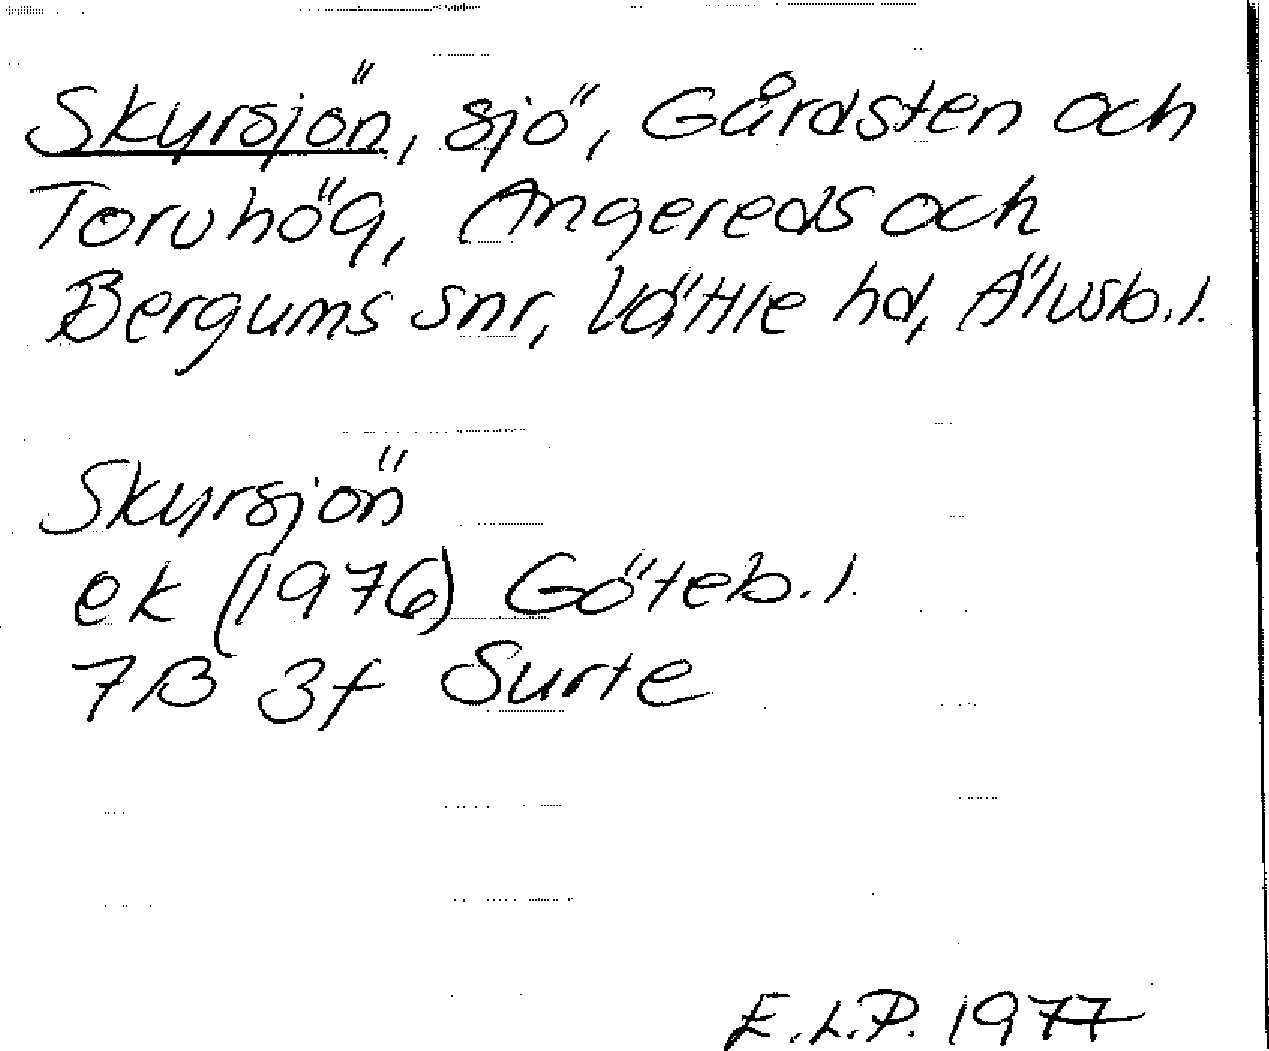 Skyrsjön, sjö, Gårdsten och
Torvhög, Angereds och
Bergums snr, Vättle hd, Älvsb.l.
Skyrsjön
ek (1976) Göteb.l.
7B 3f Surte
E.L.P. 1977